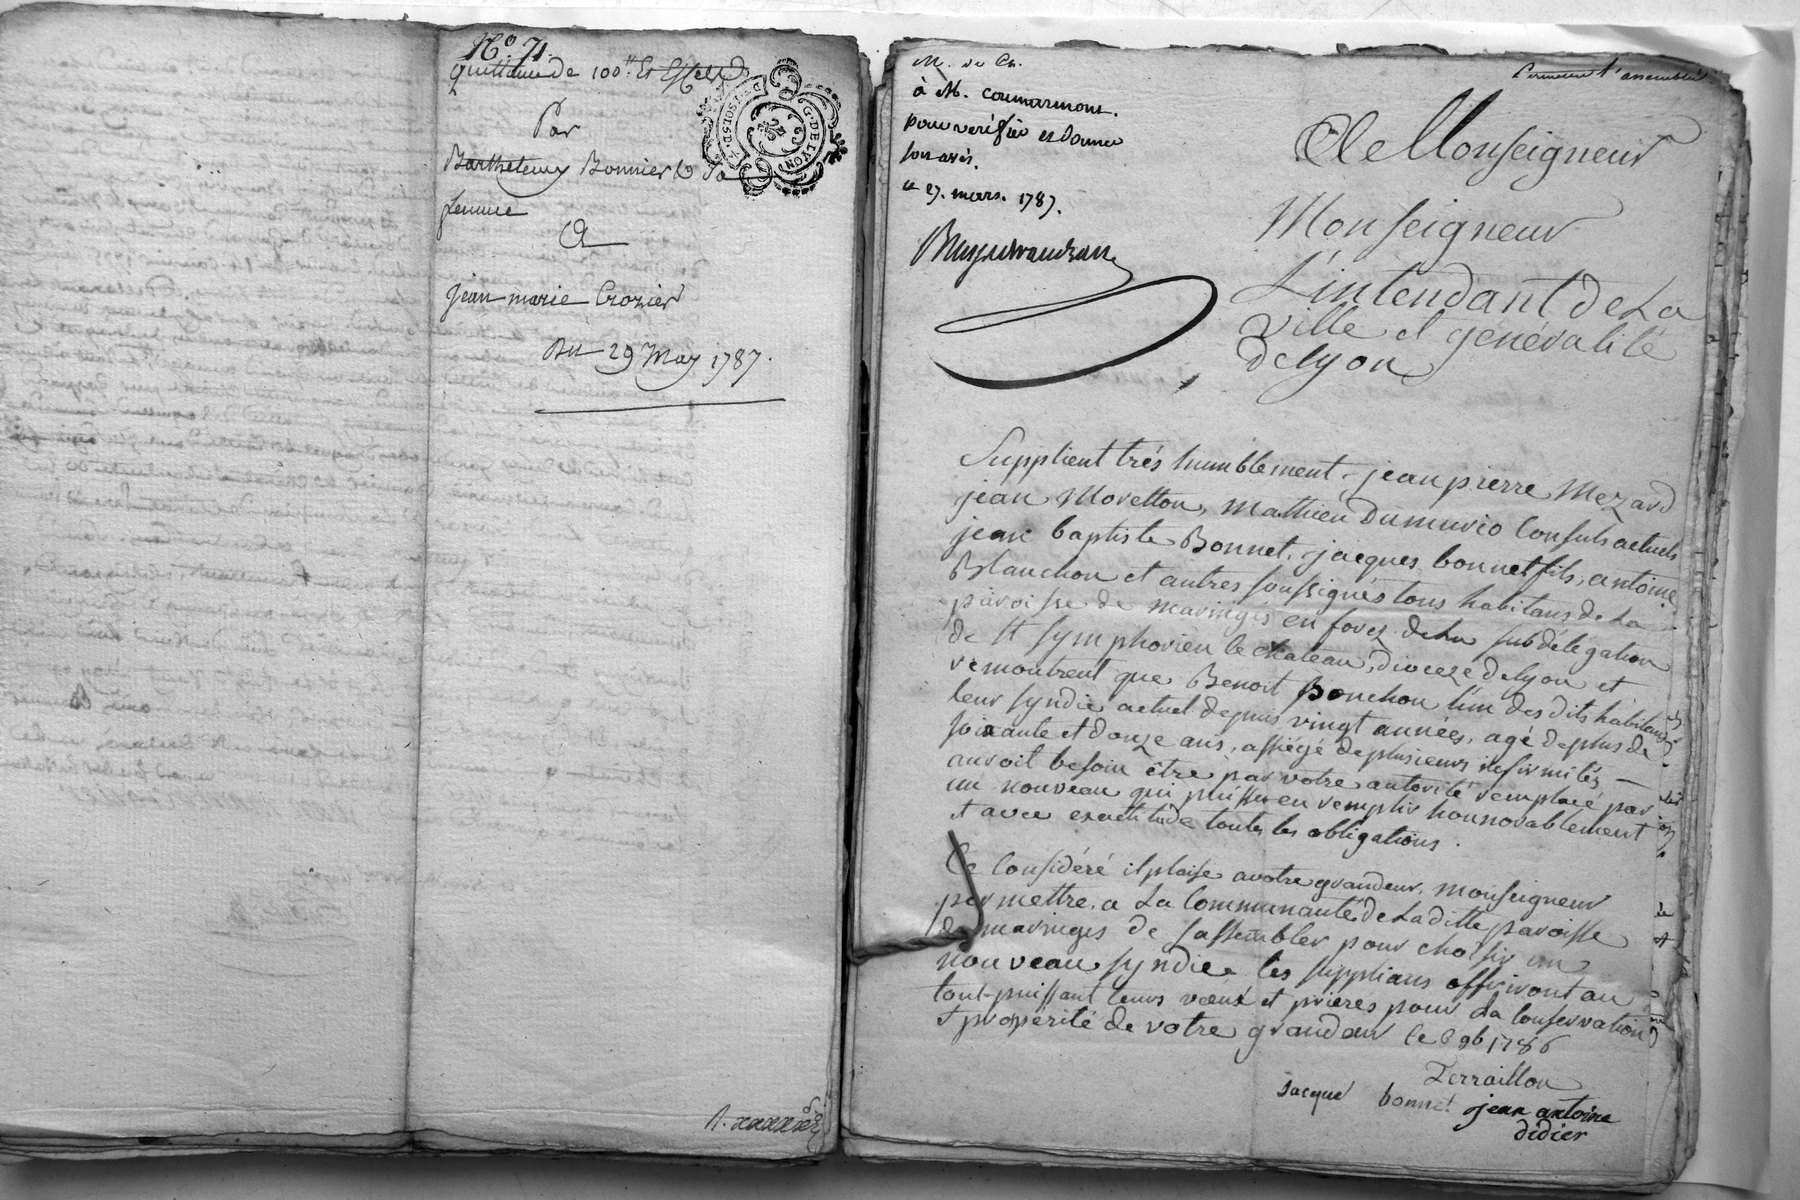 N.o 71.
Quittance de 100.tt Et Effets
Par
Barthelemy Bonnier & Sa
femme
A
jean marie Crozier
Du 29 May 1787.
G. DE LYON
à M. coumarmont.
pour verifier et donner
son avis.
ce 27. mars. 1787.
Permettre l'assemblée
A Monseigneur
Monseigneur
L'intendant de La
ville et généralité
de lyon
Supplient très humblement, jean pierre Mezard
jean Moretton, Mathieu Dumurio Consuls actuels
jean baptiste Bonnet, jacques bonnet fils, antoine
Blanchon et autres soussignés tous habitans de la
paroisse de maringes en forez de la subdélégation
de St symphorien le chateau, dioceze de lyon et
remontrent que Benoit ponchon l'un des dits habitans
leur syndic actuel depuis vingt années, agé de plus de
soixante et douze ans, assiégé de plusieurs infirmités
auroit besoin être par votre autorité remplacé par
un nouveau qui puisse en remplir honnorablement
et avec exactitude toutes les obligations.
Ce Considéré il plaise a votre grandeur, monseigneur
permettre, a La Communauté de La ditte paroisse
de maringes de sassembler pour choisir un
nouveau syndic les supplians offriront au
tout-puissant leurs vœux et prières pour La Conservation
et prospérité de votre grandeur Le 6 9b 1786
Terraillon
Jacque bonnet jean antoine
didier